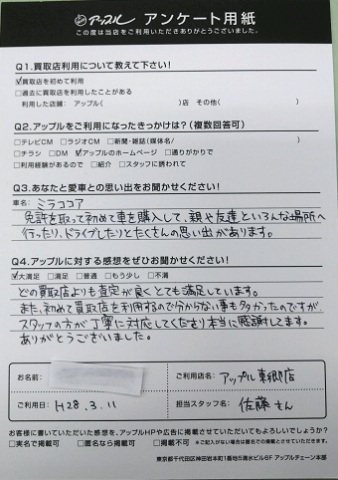 アップル アンケート用紙
この度は当店をご利用いただきありがとうございました。
Q1.買取店利用について教えて下さい!
☑買取店を初めて利用
□過去に買取店を利用したことがある
利用した店舗: アップル( )店 その他( )
Q2.アップルをご利用になったきっかけは?(複数回答可)
□テレビCM □ラジオCM □新聞・雑誌(媒体名/ )
□チラシ □DM ☑アップルのホームページ □通りがかりで
□利用経験があるので □紹介 □スタッフに誘われて
Q3.あなたと愛車との思い出をお聞かせください!
車名: ミラココア
免許を取って初めて車を購入して、親や友達といろんな場所へ
行ったり、ドライブしたりとたくさんの思い出があります。
Q4.アップルに対する感想をぜひお聞かせください!
☑大満足 □満足 □普通 □もう少し □不満
どの買取店よりも査定が良くとても満足しています。
また、初めて買取店を利用するので分からない事も多かったのですが、
スタッフの方が丁寧に対応してくださり本当に感謝してます。
ありがとうございました。
お名前:
ご利用店名: アップル東郷店
ご利用日: H28.3.11
担当スタッフ名: 佐藤さん
お客様に書いていただいた感想を、アップルHPや広告に掲載させていただいてもよろしいでしょうか?
□実名で掲載可 □匿名なら掲載可 □掲載不可 ※ご記入がない場合は匿名での掲載とさせていただきます。
東京都千代田区神田岩本町1番地5清水ビル6F アップルチェーン本部